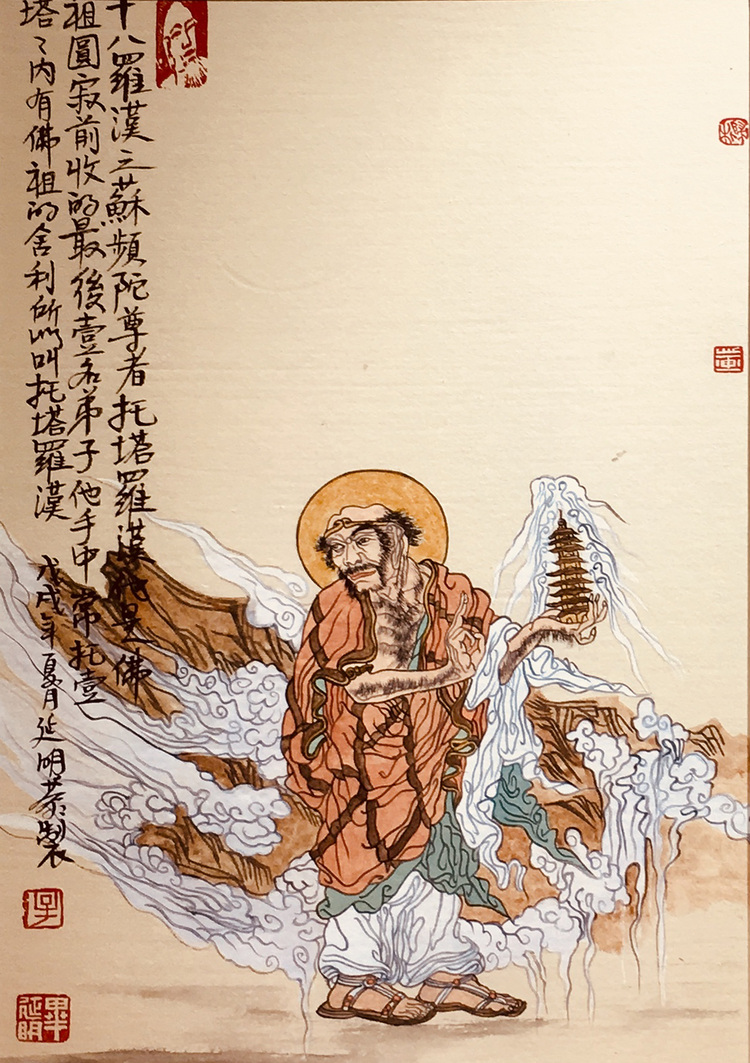 十八羅漢之蘇頻陀尊者托塔羅漢他是佛
祖圓寂前收的最後壹名弟子他手中常托壹
塔〻內有佛祖的舍利所以叫托塔羅漢
戊戌年夏月延明恭製
畢延明